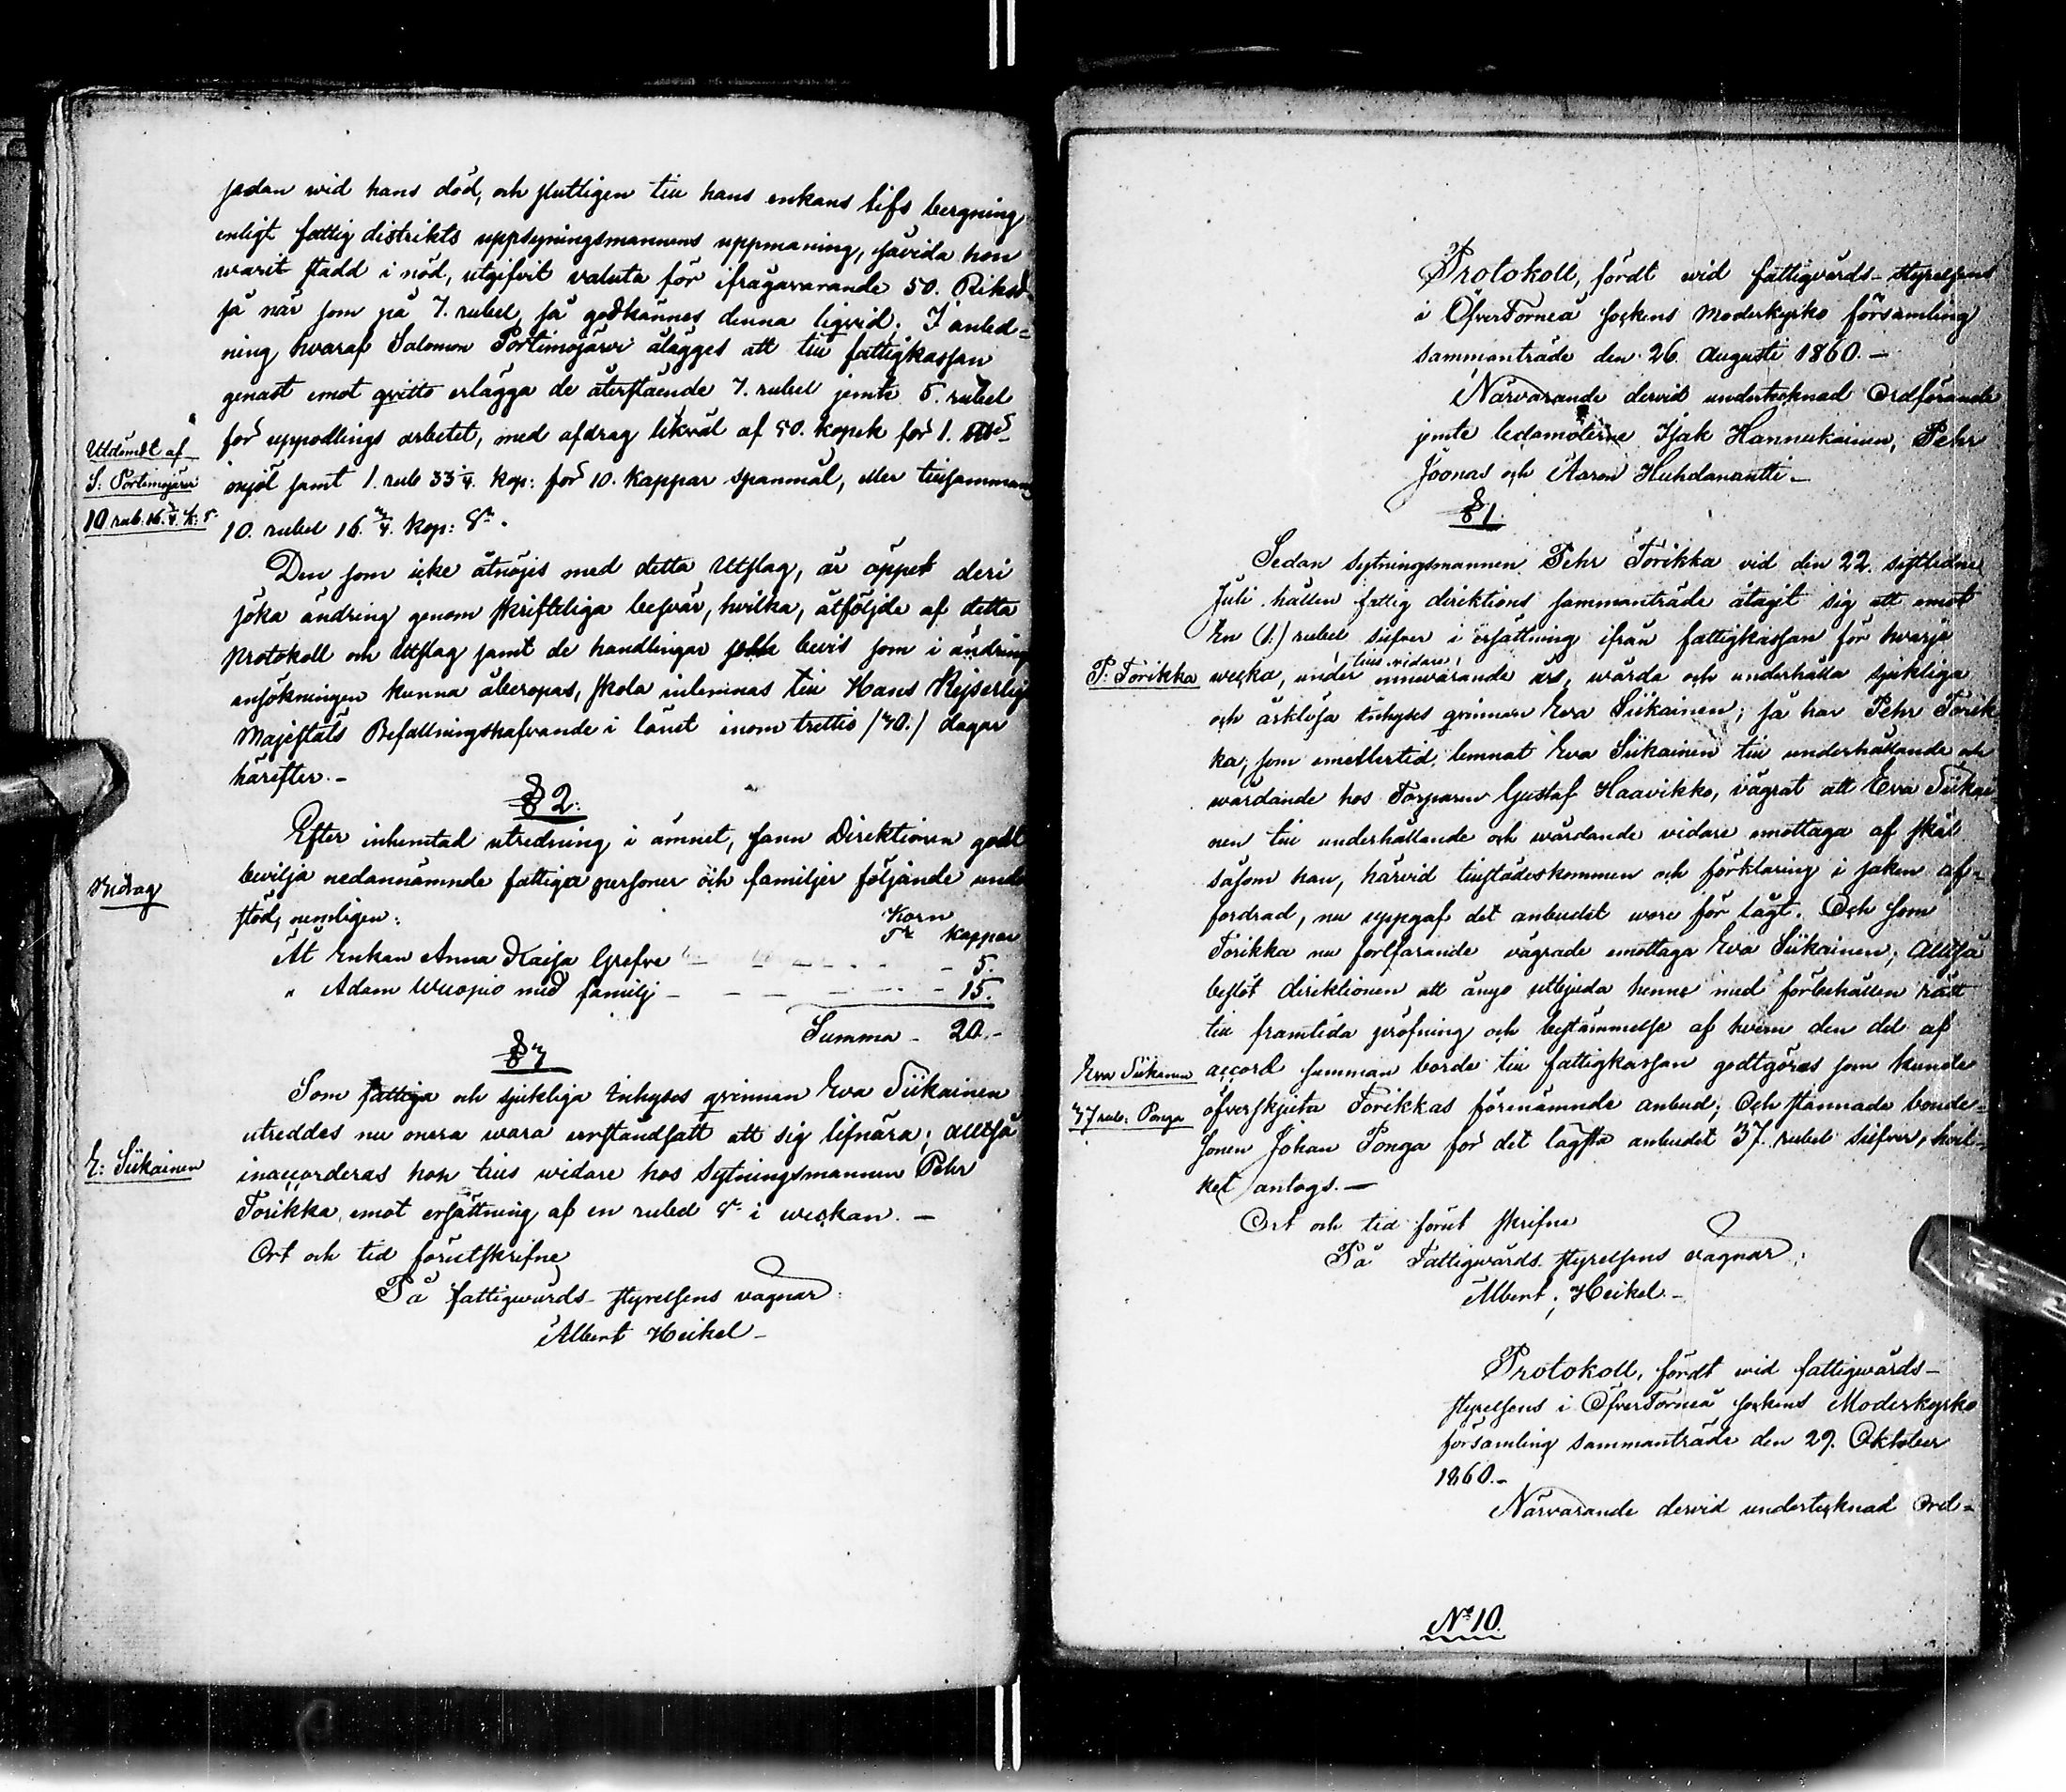 sedan wid hans död, och sluttigen till hans enkans lifs bergning
enligt fattig distrikts uppsyningsmannens uppmaning, såvida hon
warit stadd i nöd, utgifvit valuta för ifrågavarande 50. Riksd
så när som på 7. rubel, så godkännes denna liqvid. I anled-
ning hvaraf Salomon Portimojärvi ålägges att till fattigkassan
genast emot qvitto erlägga de återstående 7. rubel jemte 5. rubel
för uppodlings arbetet, med afdrag likväl af 50. kopek för 1.
mjöl samt 1. rub 33 1/4. kop: för 10. kappar spanmål, eller tillsammans
10. rubel 16. 3/4. kop: Sr.
Utdömdt af
S: Portimojärvi
10 rub: 16. 3/4. k: s.
Den som icke åtnöjes med detta Utslag, är öppet deri
söka ändring genom skrifteliga besvär, hvilka, åtföljde af detta
protokoll och Utslag samt de handlingar bevis som i ändrings
ansökningen kunna åberopas, skola inlemnas till Hans Kejserliga
Majestäts Befallningshafvande i länet inom trettio /30./ dagar
härefter.-
§ 2:
Efter inhemtad utredning i ämnet, fann Direktionen godt
bevilja nedannämnde fattiga personer och familjer följande under
stöd, nemligen:
Korn
Tr kappar
Åt Enkan Anna Kaisa Grefve - - - - 5.
" Adam Wuopio med familj - - - - 15.
Summa - 20.-
§ 3
Som fattiga och sjukliga Inhyses qvinnan Eva Siikainen
utreddes nu mera wara urståndsatt att sig lifnära; Alltså
inaccorderas hon tills widare hos Sytningsmannen Pehr
Torikka, emot ersättning af en rubel Sr i weckan. -
E: Siikainen
Ort och tid förutskrifne
På fattigwårds-styrelsens vägnar:
Albert Heikel-
Protokoll, fördt wid fattigvårds-styrelsens
i ÖfverTorneå sockens Moderkyrko församling
sammanträde den 26. Augusti 1860.-
Närvarande dervid undertecknad Ordförande
jemte ledamöterne Isak Hannukainen, Pehr
Joonas och Aaron Huhdanantti.-
§ 1.
Sedan Sytningsmannen Pehr Torikka vid den 22. sistledne
Juli hållen fattig direktions sammanträde åtagit sig att emot
En (1.) rubel silfver i ersättning ifrån fattigkassan för hvarje
P: Torikka
wecka, under tills vidare innevarande års, wårda och underhålla sjukliga
och Inhyses qvinnan Eva Siikainen; så har Pehr Torik
ka, som emellertid lemnat Eva Siikainen till underhållande och
wårdande hos Torparen Gustaf Haavikko, vägrat att Eva Siikai
nen till underhållande och wårdande vidare emottaga af skäl
såsom han, härvid tillstädeskommen och förklaring i saken af-
fordrad, nu uppgaf det anbudet wore för lågt. Och som
Torikka nu fortfarande vägrade emottaga Eva Siikainen; Alltså
beslöt direktionen att ånyo utbjuda henne med förbehållen rätt
till framtida pröfning och bestämmelse af hvem den del af
accord summan borde till fattigkassan godtgöras som kunde
öfverskjuta Torikkas förenämnde anbud; Och stannade bonde-
sonen Johan Ponga för det lägsta anbudet 37. rubel silfver, hvil-
ket antogs.-
Eva Siikainen
37 rub: Ponga
Ort och tid förut skrifne
På Fattigwårds styrelsens vägnar:
Albert Heikel.-
Protokoll, fördt wid fattigwårds-
styrelsens i ÖfverTorneå sockens Moderkyrko
församling sammanträde den 29. Oktober
1860.-
Närvarande dervid undertecknad Ord-
No 10.